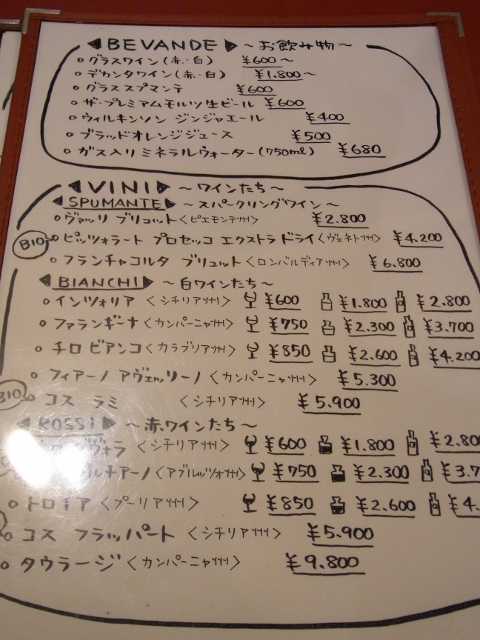 BEVANDE ～お飲み物～
グラスワイン(赤・白) ¥600～
デカンタワイン(赤・白) ¥1.800～
グラススプマンテ ¥600
ザ・プレミアムモルツ生ビール ¥600
ウィルキンソン ジンジャエール ¥400
ブラッドオレンジジュース ¥500
ガス入りミネラルウォーター(750ml) ¥680
VINI ～ワインたち～
SPUMANTE ～スパークリングワイン～
ヴァッリ ブリュット〈ピエモンテ州〉 ¥2.800
BIO ピッツォラート プロセッコ エクストラドライ〈ヴェネト州〉 ¥4.200
フランチャコルタ ブリュット〈ロンバルディア州〉 ¥6.800
BIANCHI ～白ワインたち～
インツォリア〈シチリア州〉 ¥600 ¥1.800 ¥2.800
ファランギーナ〈カンパーニャ州〉 ¥750 ¥2.300 ¥3.700
チロ ビアンコ〈カラブリア州〉 ¥850 ¥2.600 ¥4.200
フィアーノ アヴェッリーノ〈カンパーニャ州〉 ¥5.300
BIO コス ラミ〈シチリア州〉 ¥5.900
ROSSI ～赤ワインたち～
〈シチリア州〉 ¥600 ¥1.800 ¥2.80
〈アブルッツォ州〉 ¥750 ¥2.300 ¥3.7
トロイア〈プーリア州〉 ¥850 ¥2.600 ¥4.
コス フラッパート〈シチリア州〉 ¥5.900
タウラージ〈カンパーニャ州〉 ¥9.800